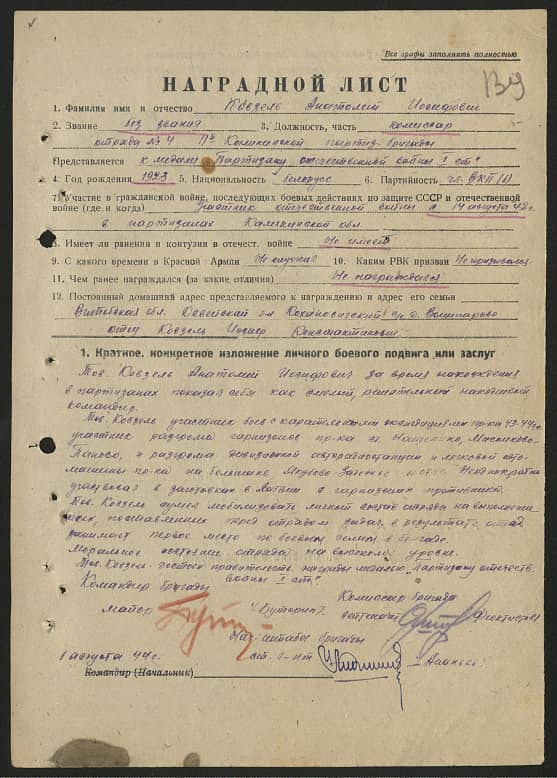 Все графы заполнять полностью
НАГРАДНОЙ ЛИСТ
1. Фамилия имя и отчество Ковзель Анатолий Иосифович
2. Звание без звания 3. Должность, часть комиссар
отряда № 4 Калининской партиз. бригады
Представляется к медали "Партизану отечественной войны I ст."
4. Год рождения 1923 5. Национальность белорус 6. Партийность чл. ВКП(б)
7. Участие в гражданской войне, последующих боевых действиях по защите СССР и отечественной
войне (где и когда) участник отечественной войны с 14 августа 42 г.
в партизанах Калининской обл.
8. Имеет ли ранения и контузия в отечест. войне Не имеет
9. С какого времени в Красной Армии Не служил 10. Каким РВК призван Не призывался
11. Чем ранее награждался (за какие отличия) Не награждался
12. Постоянный домашний адрес представляемого к награждению и адрес его семьи
Витебская обл. с/с д.
отец Ковзель Иосиф Константинович
1. Краткое, конкретное изложение личного боевого подвига или заслуг
Тов. Ковзель Анатолий Иосифович за время нахождения
в партизанах показал себя как смелый, решительный находчивый
командир.
Тов. Ковзель участник боев с карательными экспедициями пр-ка 43-44 г.г.
участник разгрома гарнизонов пр-ка ст.
и разгрома авторадиостанции и легковой авто-
машины пр-ка на большаке Неоднократно
участвовал в заготовках в Латвии в гарнизонах противника.
Тов. Ковзель сумел мобилизовать личный состав отряда на выполнение
задач, поставленных перед отрядом, в результате отряд
занимает первое место по боевым делам в бригаде.
Моральное состояние отряда на высоком уровне.
Тов. Ковзель достоин правительств. награды медалью "Партизану отечеств.
войны I ст."
Командир бригады Комиссар бригады
майор /Буторин/. лейтенант
Нач. штаба бригады
1 августа 44 г. ст. л-нт
Командир (Начальник)